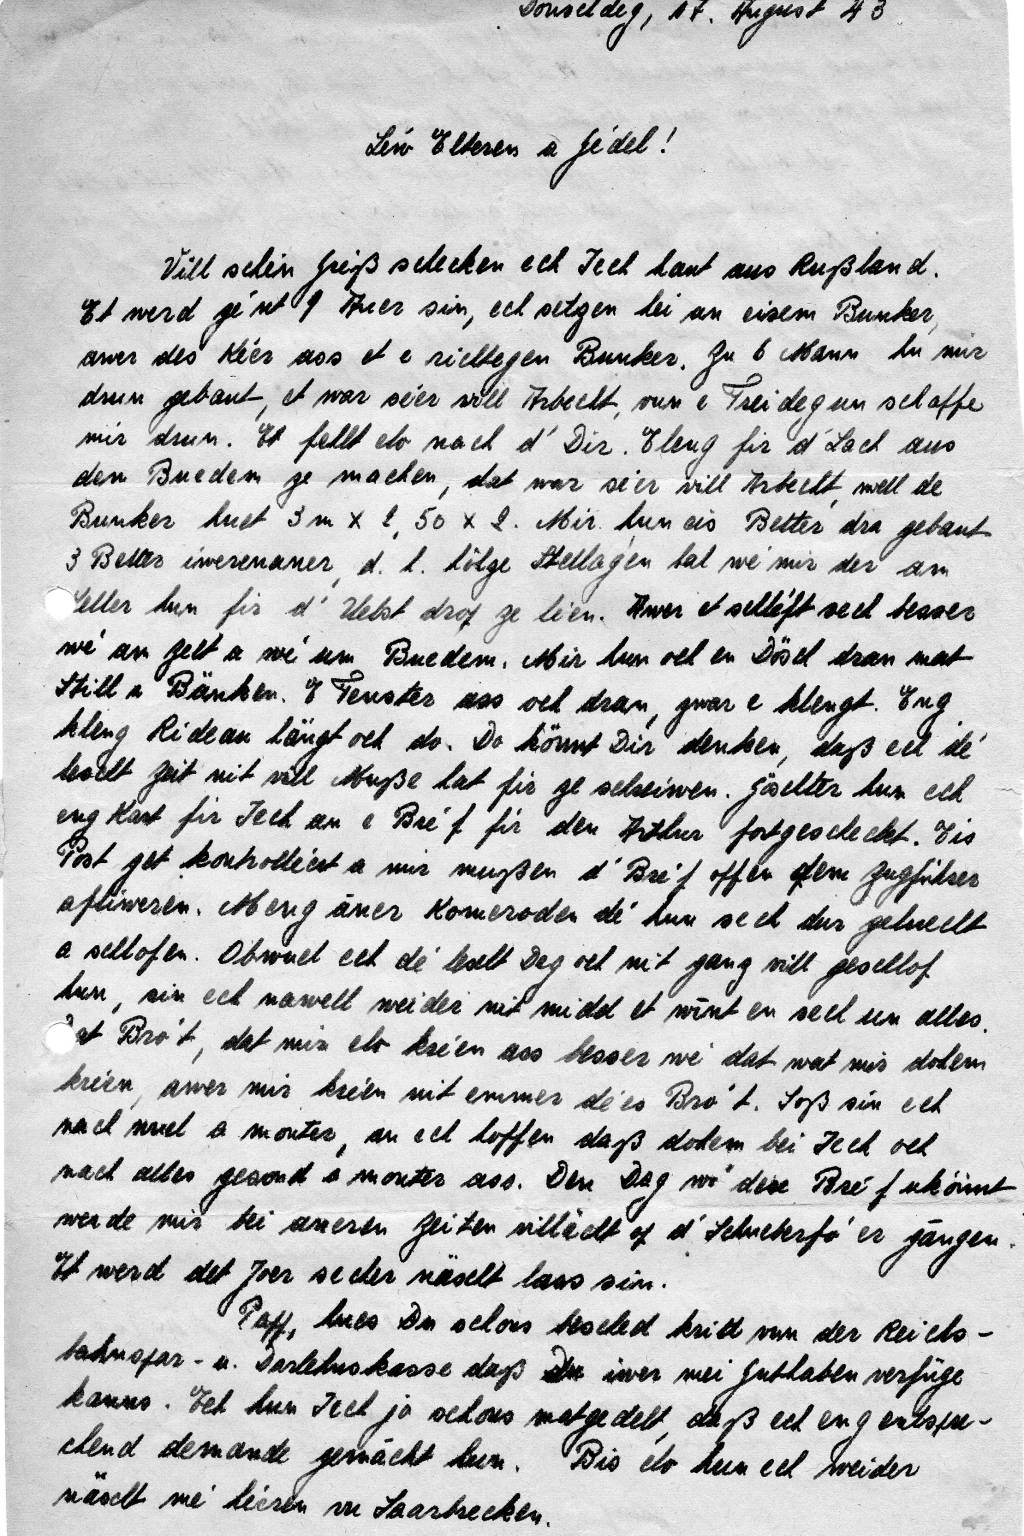 Donseldeg, 17. August 43
Léiw Elteren a Jédel!
Vill schéin Gréiß schecken ech Iech haut aus Rußland.
Et werd géint 9 Auer sin, ech setzen hei an eisem Bunker,
awer des Kéer ass et e richtegen Bunker. Zu 6 Mann hu mir
drun gebaut, et war séier vill Arbecht, vun e Freideg un schaffe
mir drun. Et fellt elo nach d' Dir. Eleng fir d' Lach aus
dem Buedem ze machen, dat war séier vill Arbecht, well de
Bunker huet 3 m x 2,50 x 2. Mir hun eis Better dra gebaut
3 Better iwerenaner, d. h. hölze Stellagen bal wé mir der am
Keller hun fir d' Uebst drop ze léen. Awer et schléft sech besser
wé an Zelt a wé um Buedem. Mir hun och en Dösch dran mat
Still a Bänken. E Fenster ass och dran, zwar e klengt. Eng
kleng Rideau hängt och do. Do könnt Dir denken, daß ech dé
lescht Zeit nit vill Muße hat fir ze schreiwen. Göschter hun ech
eng Kart fir Iech an e Bréf fir den Arthur fortgescheckt. Eis
Post get kontrolléiert a mir mußen d' Bréf offen dem Zugführer
afliweren. Meng äner Komeroden dé hun sech dur geluecht
a schlofen. Obwuel ech dé lescht Dag och nit ganz vill geschlof
hun, sin ech nawell weider nit midd et wînt en sech un alles.
Dat Bro't, dat mir elo kréen ass besser wé dat wat mir dohem
kréen, awer mir kréen nit emmer dées Bro't. Soß sin ech
nach wuel a monter, an ech hoffen daß dohem bei Iech och
nach alles gesond a monter ass. Den Dag wo' dese Bréf ukömt
werde mir bei aneren Zeiten villächt op d' Schueberfo'er gängen.
Et werd det Joer secher näscht lass sin.
Papp, hues Du schons bescheed kritt vun der Reichs-
bahnspar- u. Darlehnskasse daß Du iwer mei Guthaben verfüge
kanns. Ech hun Iech jo schons matgedelt, daß ech eng entspre-
chend demande gemächt hun. Bis elo hun ech weider
näscht méi héieren vu Saarbrecken.